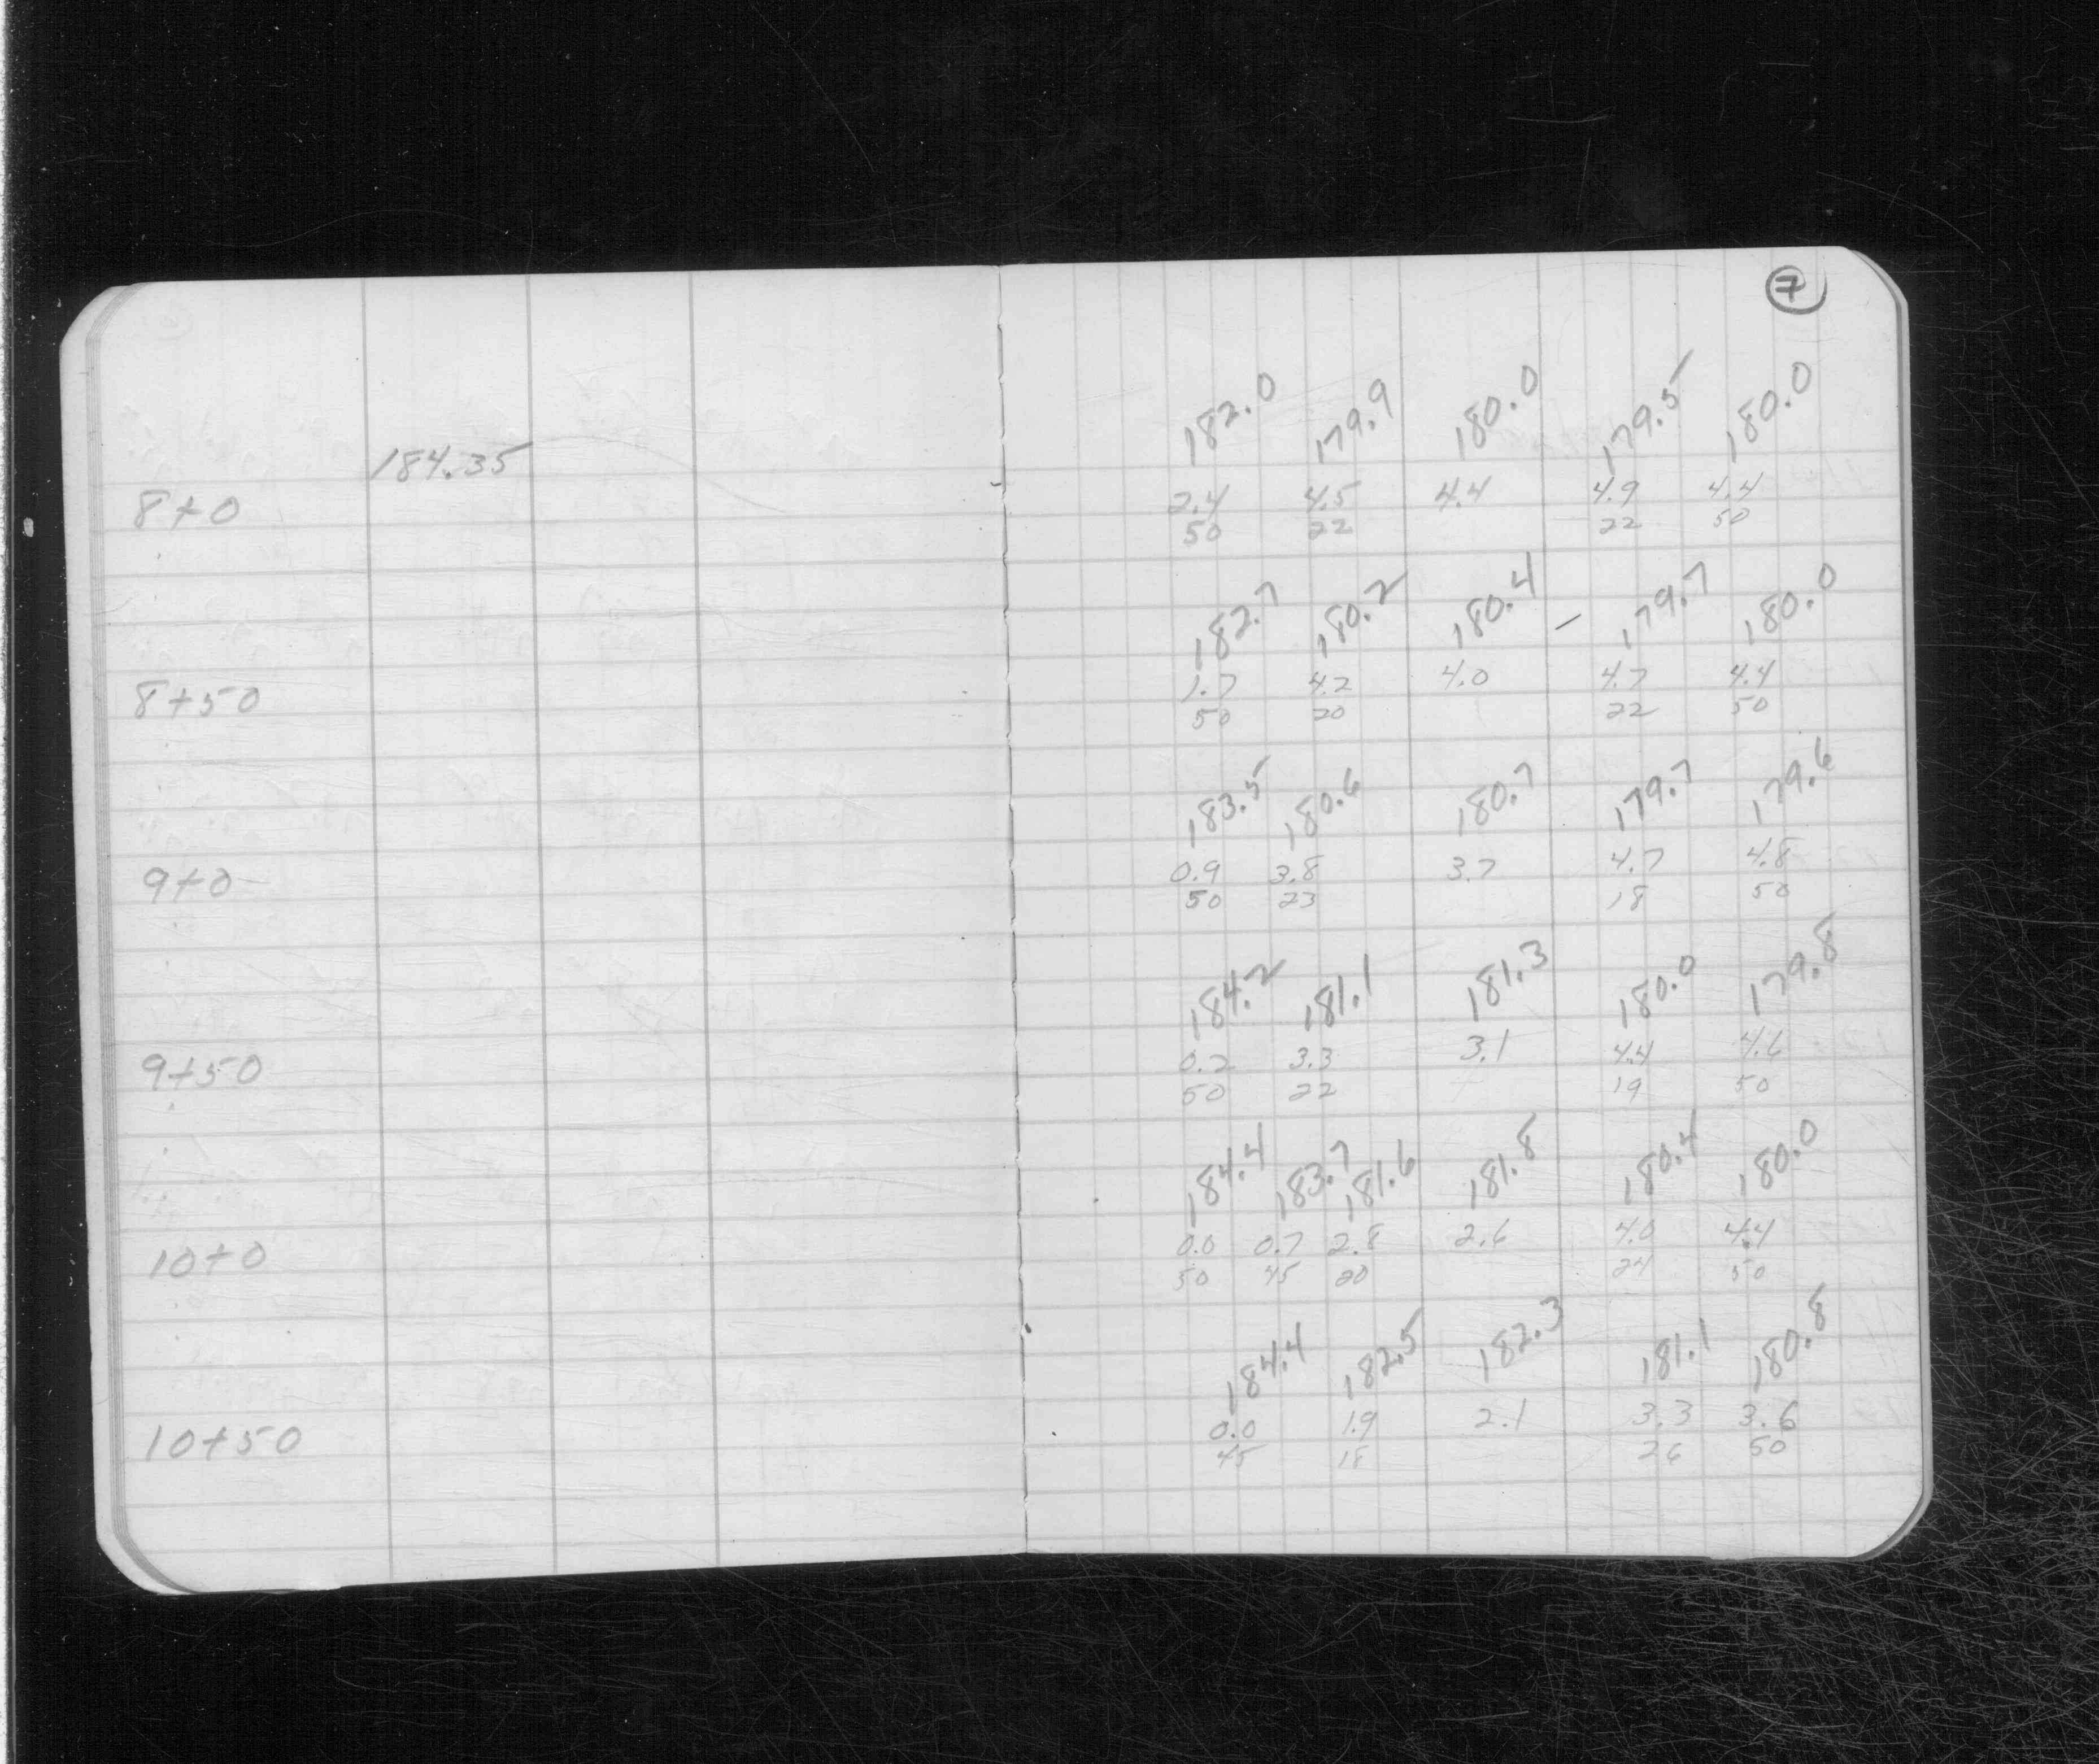 7
182.0 179.9 180.0 179.5 180.0
184.35
8+0 2.4 4.5 4.4 4.9 4.4
50 22 22 50
182.7 180.2 180.4 - 179.7 180.0
8+50 1.7 4.2 4.0 4.7 4.4
50 20 22 50
183.5 180.6 180.7 179.7 179.6
9+0 0.9 3.8 3.7 4.7 4.8
50 23 18 50
184.2 181.1 181.3 180.0 179.8
9+50 0.2 3.3 3.1 4.4 4.6
50 22 19 50
184.4 183.7 181.6 181.8 180.4 180.0
10+0 0.0 0.7 2.8 2.6 4.0 4.4
50 45 20 24 50
184.4 182.5 182.3 181.1 180.8
10+50 0.0 1.9 2.1 3.3 3.6
45 18 26 50